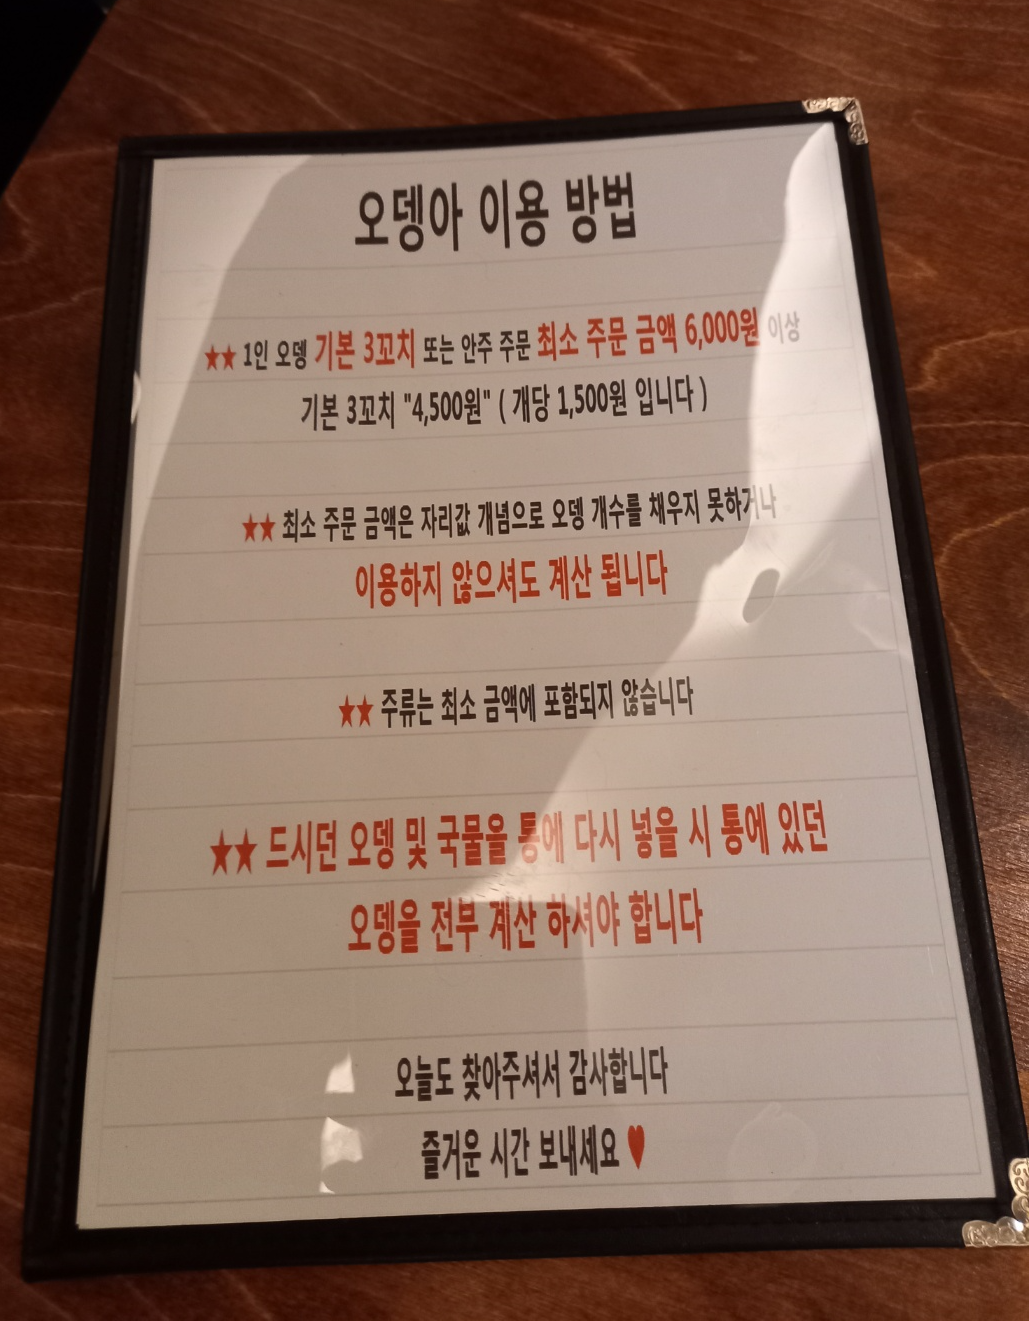 오뎅아 이용 방법
★★ 1인 오뎅 기본 3꼬치 또는 안주 주문 최소 주문 금액 6,000원 이상
기본 3꼬치 "4,500원" ( 개당 1,500원 입니다 )
★★ 최소 주문 금액은 자리값 개념으로 오뎅 개수를 채우지 못하거나
이용하지 않으셔도 계산 됩니다
★★ 주류는 최소 금액에 포함되지 않습니다
★★ 드시던 오뎅 및 국물을 통에 다시 넣을 시 통에 있던
오뎅을 전부 계산 하셔야 합니다
오늘도 찾아주셔서 감사합니다
즐거운 시간 보내세요 ♥